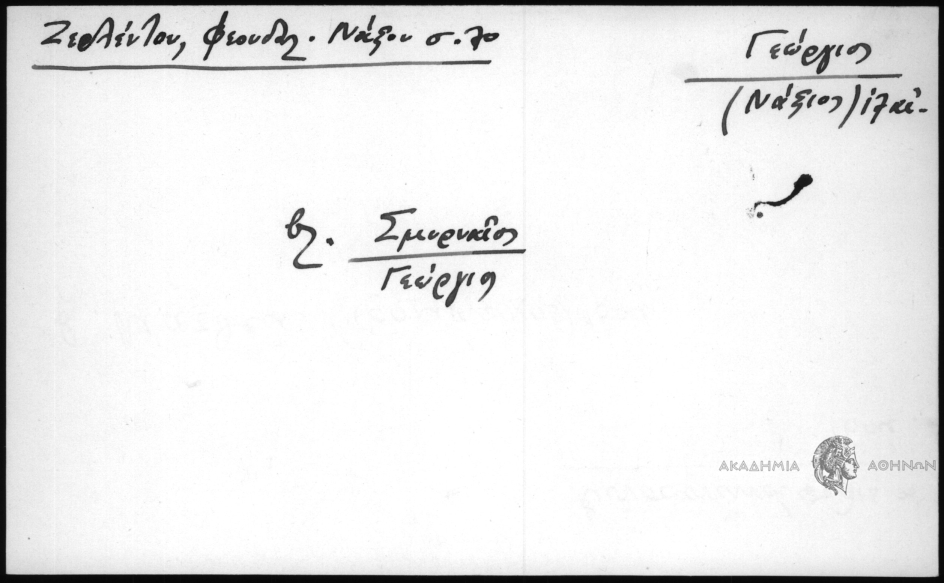 Ζερλέντου, Φεουδαλ. Νάξου σ. 70
Γεώργιος
(Νάξιος)
βλ. Σμυρναῖος
Γεώργιος
ΑΚΑΔΗΜΙΑ ΑΘΗΝΩΝ